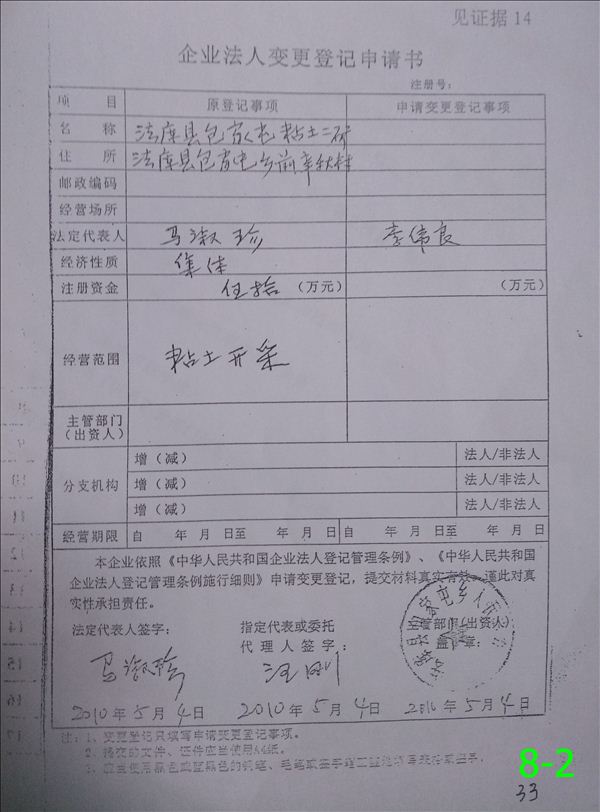 见证据14
企业法人变更登记申请书
注册号：
项 目 原登记事项 申请变更登记事项
名 称 法库县包家屯粘土二矿
住 所 法库县包家屯乡前辛秋村
邮政编码
经营场所
法定代表人 马淑珍 李伟良
经济性质 集体
注册资金 伍拾 （万元） （万元）
经营范围 粘土开采
主管部门
（出资人）
分支机构
增（减） 法人/非法人
增（减） 法人/非法人
增（减） 法人/非法人
经营期限 自 年 月 日至 年 月 日 自 年 月 日至 年 月 日
本企业依照《中华人民共和国企业法人登记管理条例》、《中华人民共和国
企业法人登记管理条例施行细则》申请变更登记，提交材料真实有效，谨此对真
实性承担责任。
法定代表人签字： 指定代表或委托 主管部门（出资人）
代理人签字： 盖章：
马淑珍 汪刚
2010年5月4日 2010年5月4日 2010年5月4日
注：1、变更登记只填写申请变更登记事项。
2、提交的文件、证件应当使用A4纸。
3、应当使用黑色或蓝黑色的钢笔、毛笔或签字笔工整地填写表格或签字。
8-2
33